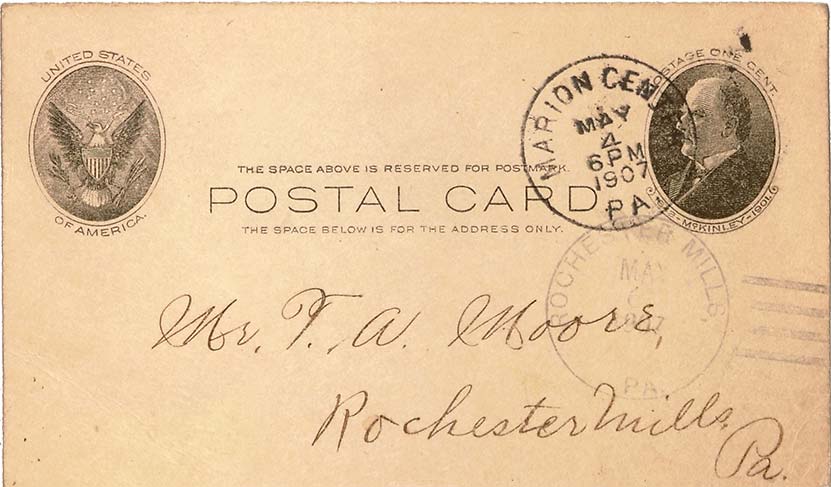 UNITED STATES
OF AMERICA.
POSTAGE ONE CENT.
McKINLEY-1901
MARION CENT
MAY
4
6PM
1907
PA.
THE SPACE ABOVE IS RESERVED FOR POSTMARK.
POSTAL CARD
THE SPACE BELOW IS FOR THE ADDRESS ONLY.
ROCHESTER MILLS,
MAY
1907
PA.
Mr. T. A. Moore,
Rochester Mills,
Pa.